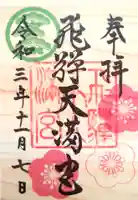 奉拝
飛騨天満宮
令和三年十一月七日